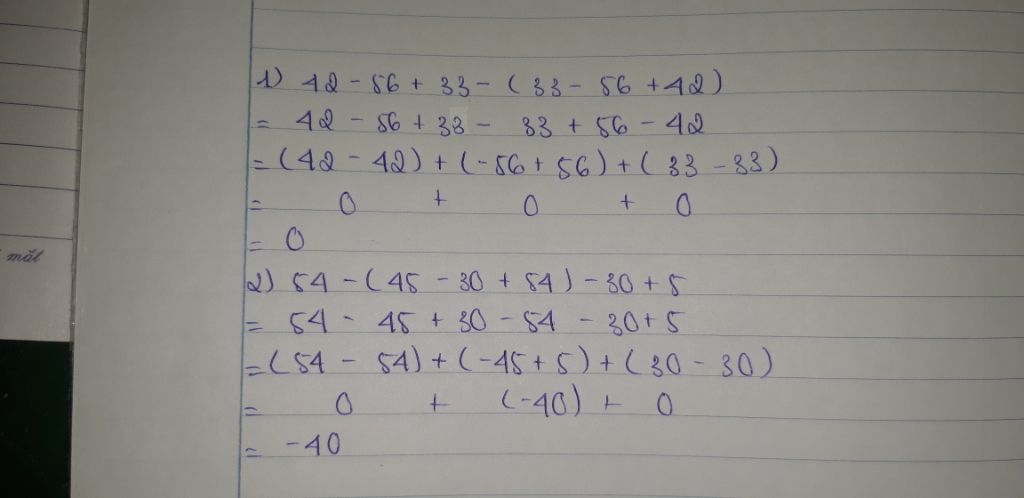 mắt
1) 42 - 56 + 33 - ( 33 - 56 + 42 )
= 42 - 56 + 33 - 33 + 56 - 42
= ( 42 - 42 ) + ( - 56 + 56 ) + ( 33 - 33 )
= 0 + 0 + 0
= 0
2) 54 - ( 45 - 30 + 54 ) - 30 + 5
= 54 - 45 + 30 - 54 - 30 + 5
= ( 54 - 54 ) + ( - 45 + 5 ) + ( 30 - 30 )
= 0 + ( - 40 ) + 0
= - 40